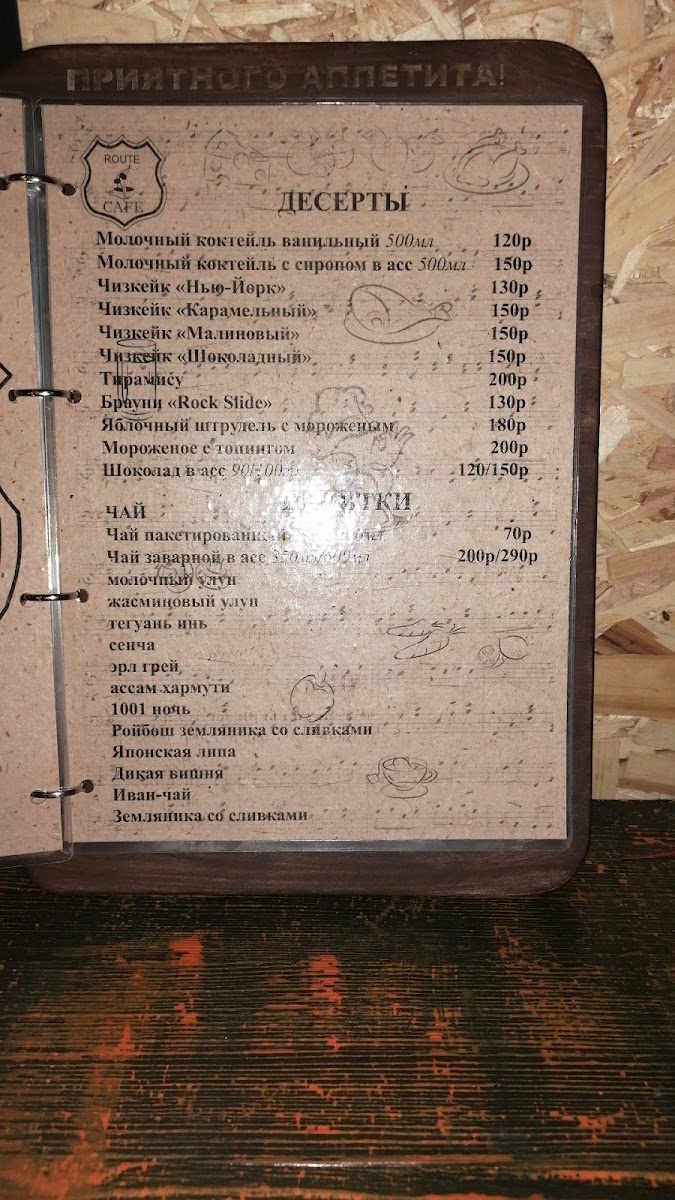 ПРИЯТНОГО АППЕТИТА!
ROUTE
CAFE
ДЕСЕРТЫ
Молочный коктейль ванильный 500мл 120р
Молочный коктейль с сиропом в асс 500мл 150р
Чизкейк «Нью-Йорк» 130р
Чизкейк «Карамельный» 150р
Чизкейк «Малиновый» 150р
Чизкейк «Шоколадный» 150р
Тирамису 200р
Брауни «Rock Slide» 130р
Яблочный штрудель с мороженым 180р
Мороженое с топингом 200р
Шоколад в асс 120/150р
ЧАЙ
Чай пакетированный 70р
Чай заварной в асс 350мл/600мл 200р/290р
молочный улун
жасминовый улун
тегуань инь
сенча
эрл грей
ассам хармути
1001 ночь
Ройбош земляника со сливками
Японская липа
Дикая вишня
Иван-чай
Земляника со сливками